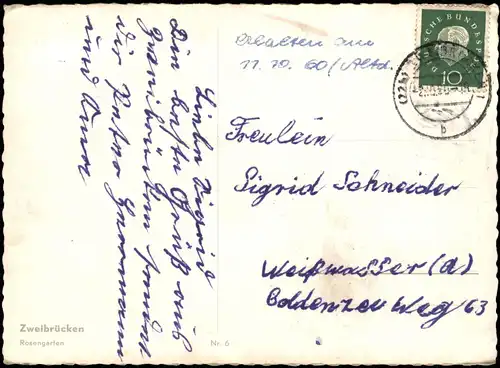 Liebe Sigrid
Die beste Grüß aus
Zweibrücken sendet
Dir Peter Herrmann
und
Erhalten am
11.10.60/Altd.
DEUTSCHE BUNDESPOST
10
(22b)
b
Freulein
Sigrid Schneider
Weißwasser (a)
Weg 63
Zweibrücken
Rosengarten
Nr. 6